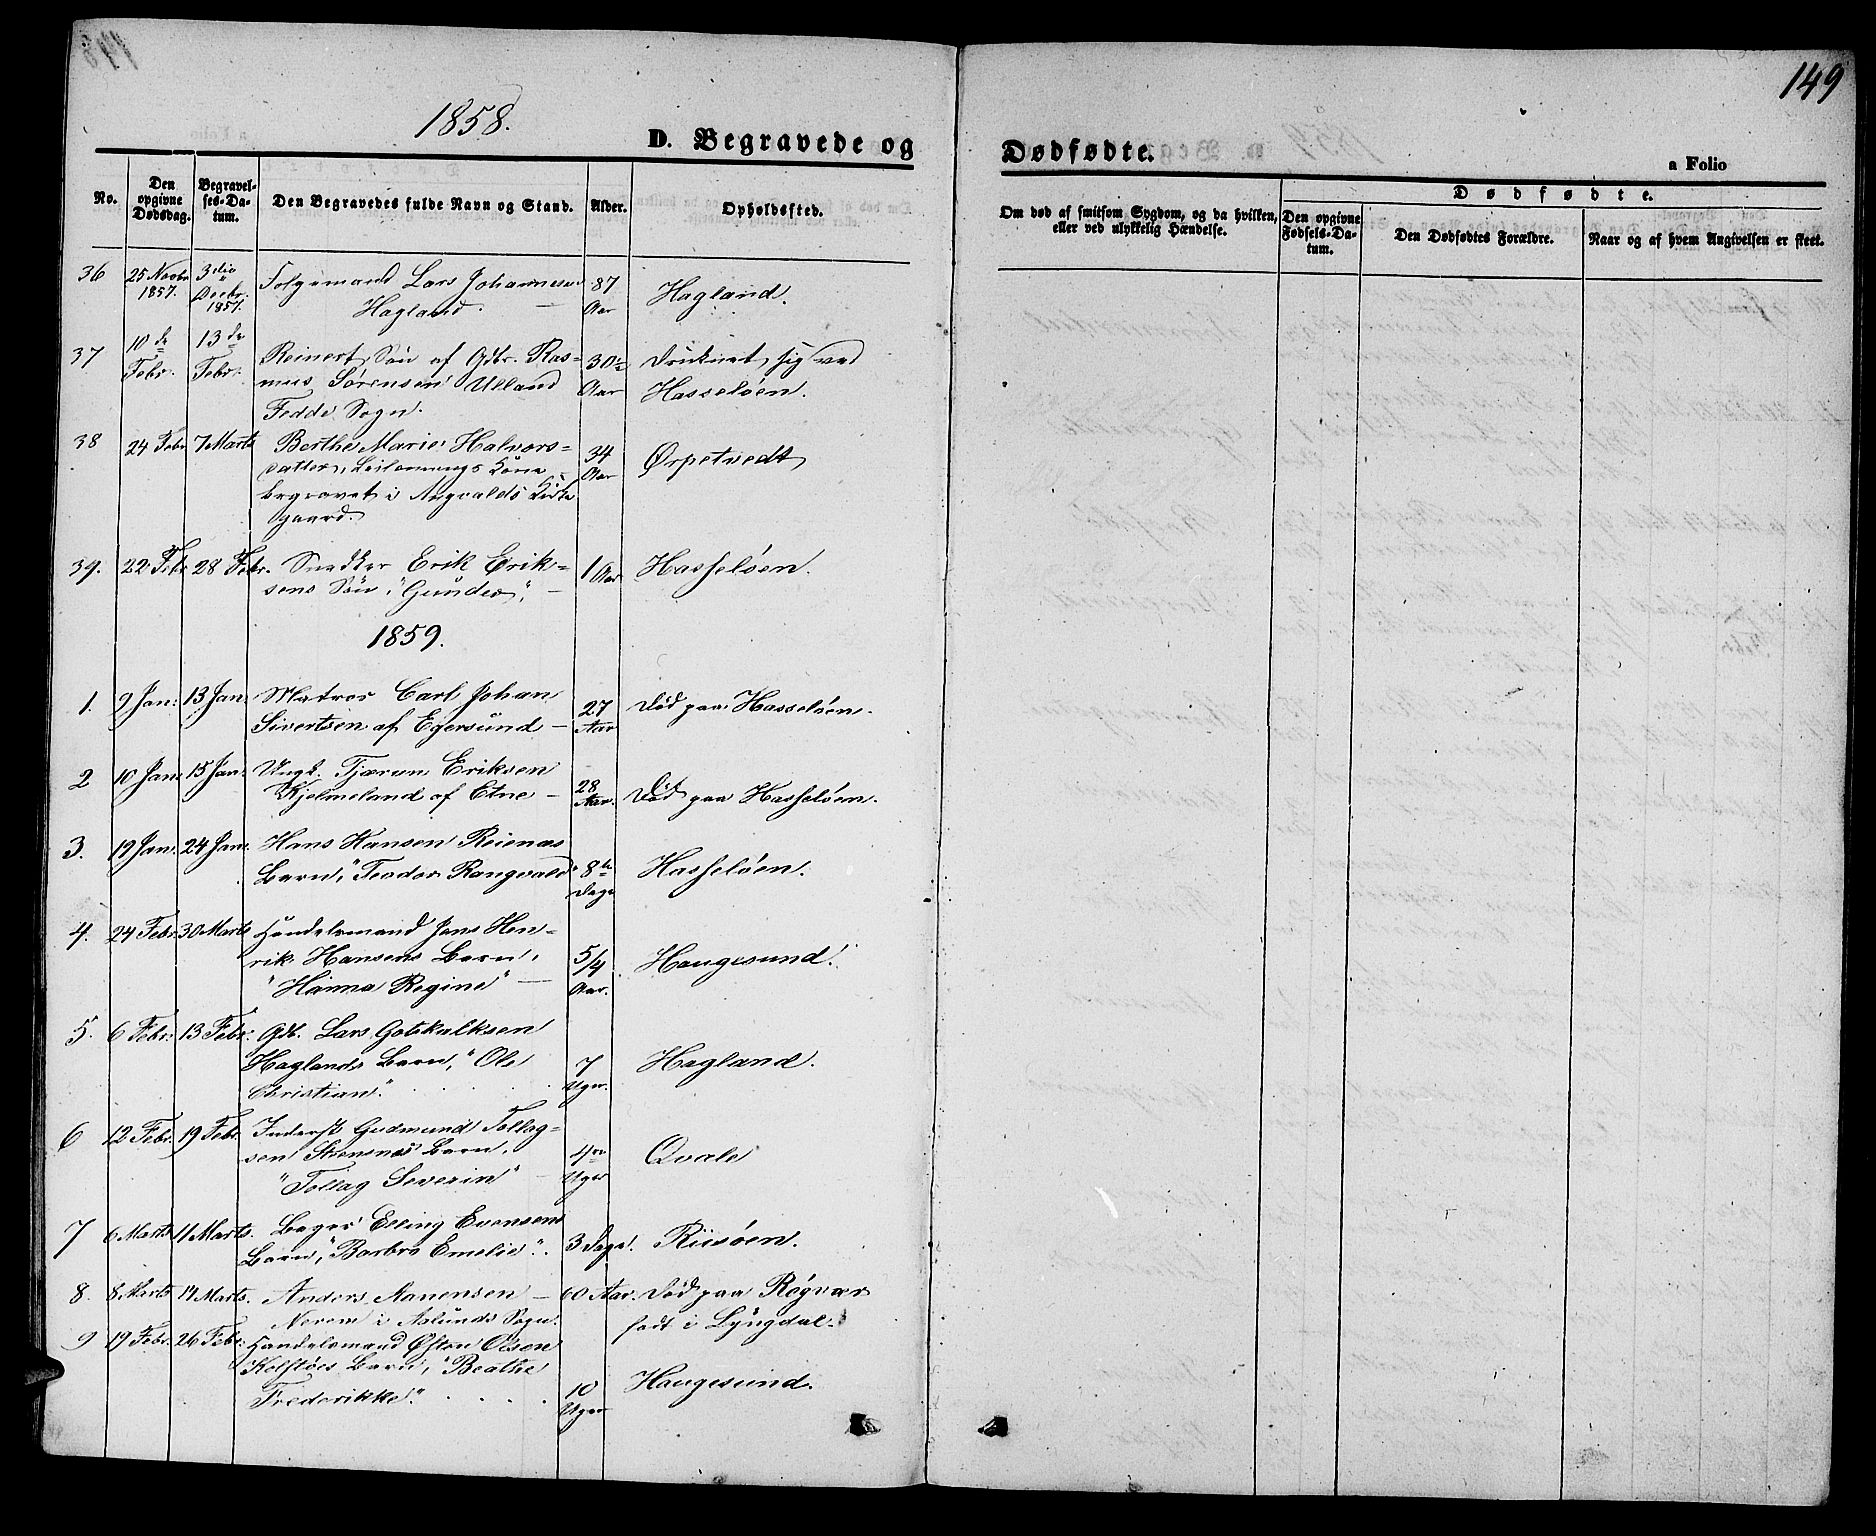 149
1858.
D. Begravede og Dødfødte.
a Folio
No.
Den opgivne Dødsdag.
Begravelses-Datum.
Den Begravedes fulde Navn og Stand.
Alder.
Opholdssted.
Om død af smitsom Sygdom, og da hvilken, eller ved ulykkelig Hændelse.
Dødfødte.
Den opgivne Fødsels-Datum.
Den Dødfødtes Forældre.
Naar og af hvem Angivelsen er skeet.
36 25 Novbr 1857. 3die Decbr. 1857. Lars Johannesen 87 Aar Hagland.
Hagland.
37 10de Febr. 13de Febr. Reinert, Søn af Gdbr. Ras=
mus Sørensen Ulland 30 Aar Druknet sig ved
Fedde Sogn. Hasseløen.
38 24 Febr 7 Marts Berthe Marie Halvors=
datter, Leilændings Kone 34 Aar Ørpetvedt
begravet i Augvalds Kirke
gaard.
39. 22 Febr 28 Febr. Snedker Erik Erik= 1 Aar Hasseløen.
sens Søn, "Gunder",
1859.
1. 9 Jan: 13 Jan: Matros Carl Johan
Sivertsen af Egersund – 27 Aar Død paa Hasseløen.
2 10 Jan: 15 Jan: Ungk. Tjæran Eriksen
Kjelmeland af Etne – 28 Aar. Død paa Hasseløen.
3. 19 Jan. 24 Jan. Hans Hansen Reienas
Barn, "Teodor Rangvald" 8te Dage Hasseløen.
4. 24 Febr. 30 Marts Handelsmand Jens Hen=
rik Hansens Barn, 5/4 Aar. Haugesund.
"Hanna Regine" –
5. 6 Febr. 13 Febr. Gdb. Lars Gotskalksen
Haglands Barn, "Ole 7 Uger. Hagland.
Christian".
6 12 Febr. 19 Febr. Inderst Gudmund Tollag=
sen Skenenes Barn, 4re Uger Qvale
"Tollag Severin" –
7 6 Marts 11 Marts. Bager Elling Evensens
Barn, "Barbro Emelie". 3 Dage. Risøen.
8. 8 Marts 14 Marts. Anders Aanensen – 60 Aar. Død paa Røgvær
i Sogn. født i Lyngdal.
9 19 Febr. 26 Febr. Handelsmand Østen Olsen
Kolstøes Barn, "Beathe 10 Uger Haugesund.
Frederikke".